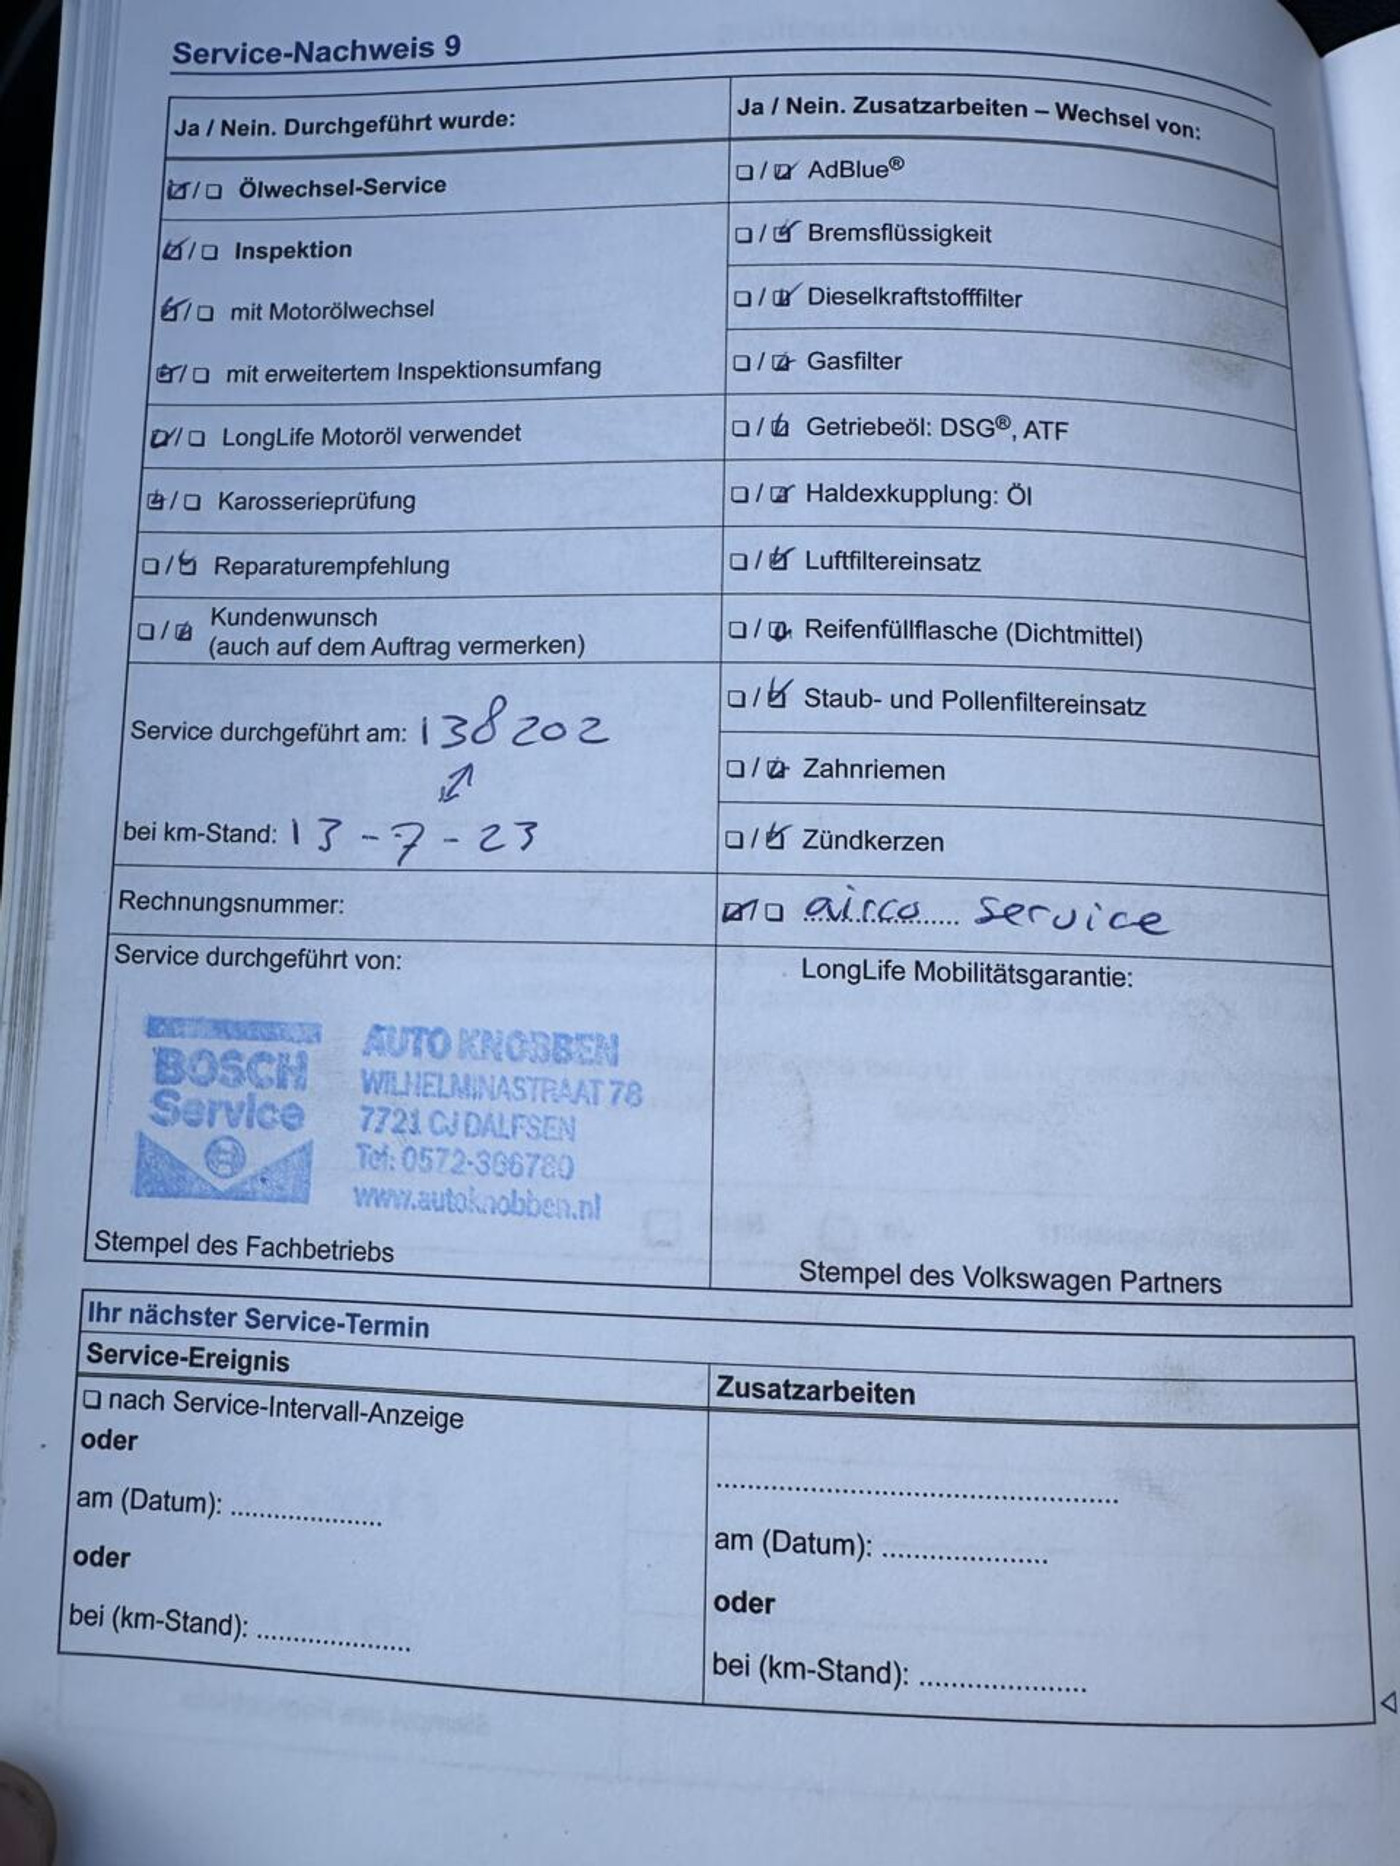 Service-Nachweis 9
Ja / Nein. Durchgeführt wurde:
☑/☐ Ölwechsel-Service
☑/☐ Inspektion
☑/☐ mit Motorölwechsel
☑/☐ mit erweitertem Inspektionsumfang
☑/☐ LongLife Motoröl verwendet
☑/☐ Karosserieprüfung
☐/☑ Reparaturempfehlung
☐/☑ Kundenwunsch
(auch auf dem Auftrag vermerken)
Service durchgeführt am: 138202
bei km-Stand: 13-7-23
Rechnungsnummer:
Service durchgeführt von:
BOSCH
Service
AUTO KNOBBEN
WILHELMINASTRAAT 78
7721 CJ DALFSEN
Tel: 0572-366780
www.autoknobben.nl
Stempel des Fachbetriebs
Ja / Nein. Zusatzarbeiten – Wechsel von:
☐/☑ AdBlue®
☐/☑ Bremsflüssigkeit
☐/☑ Dieselkraftstofffilter
☐/☑ Gasfilter
☐/☑ Getriebeöl: DSG®, ATF
☐/☑ Haldexkupplung: Öl
☐/☑ Luftfiltereinsatz
☐/☑ Reifenfüllflasche (Dichtmittel)
☐/☑ Staub- und Pollenfiltereinsatz
☐/☑ Zahnriemen
☐/☑ Zündkerzen
☑/☐ airco service
LongLife Mobilitätsgarantie:
Stempel des Volkswagen Partners
Ihr nächster Service-Termin
Service-Ereignis
☐ nach Service-Intervall-Anzeige
oder
am (Datum): .....................
oder
bei (km-Stand): .....................
Zusatzarbeiten
.......................................................
am (Datum): .....................
oder
bei (km-Stand): .....................